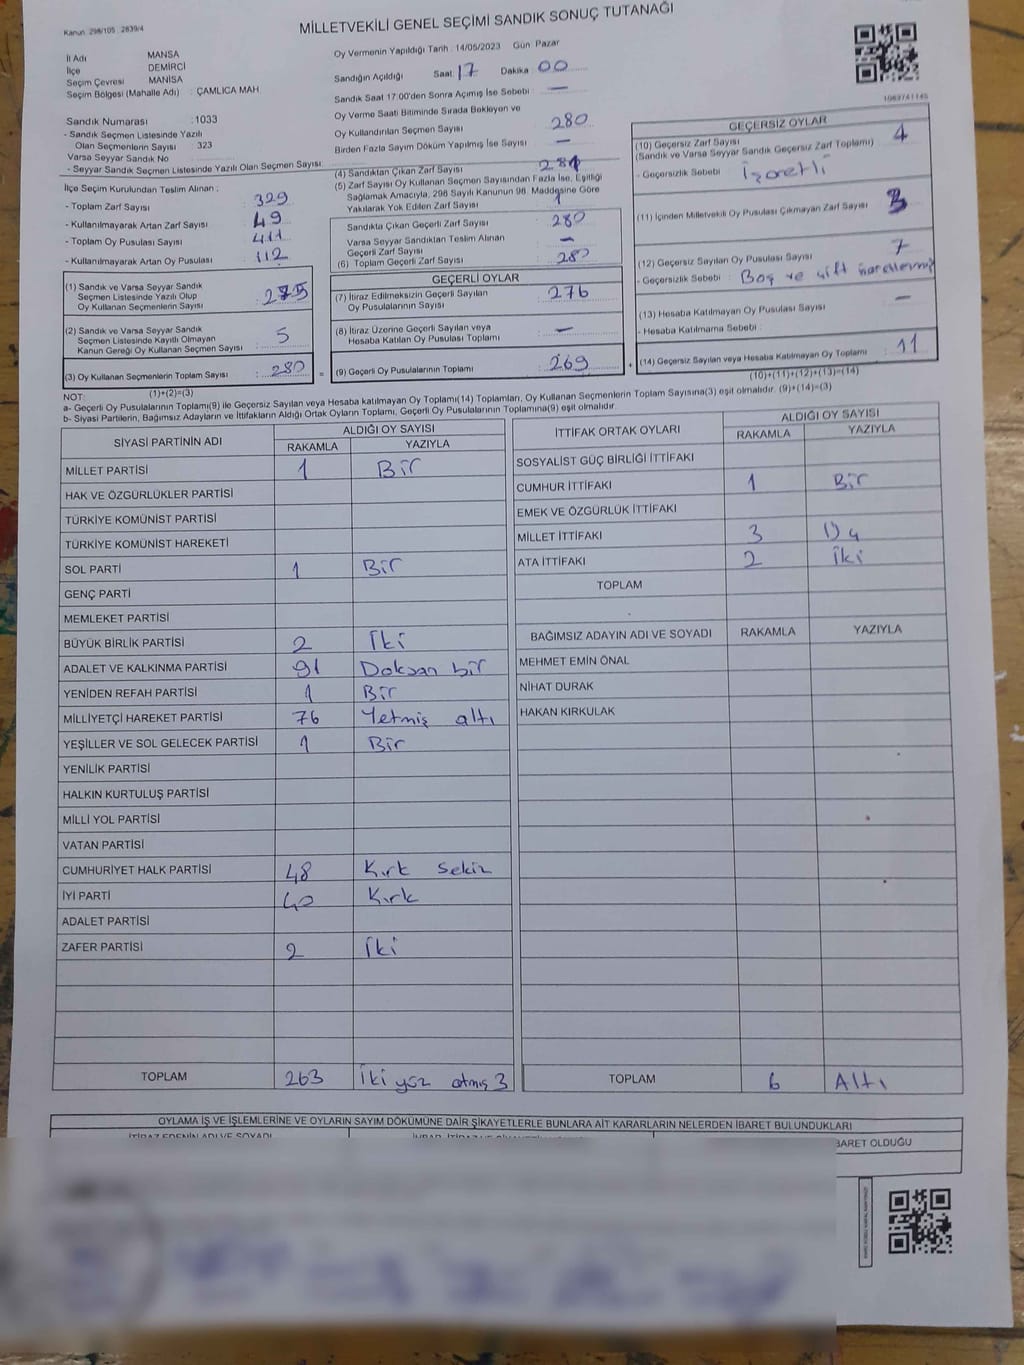 Kanun: 298/105 : 2839/4
MİLLETVEKİLİ GENEL SEÇİMİ SANDIK SONUÇ TUTANAĞI
İl Adı MANİSA
İlçe DEMİRCİ
Seçim Çevresi MANİSA
Seçim Bölgesi (Mahalle Adı) : ÇAMLICA MAH.
Sandık Numarası : 1033
- Sandık Seçmen Listesinde Yazılı
Olan Seçmenlerin Sayısı 323
Varsa Seyyar Sandık No
- Seyyar Sandık Seçmen Listesinde Yazılı Olan Seçmen Sayısı:
İlçe Seçim Kurulundan Teslim Alınan :
- Toplam Zarf Sayısı 329
- Kullanılmayarak Artan Zarf Sayısı 49
- Toplam Oy Pusulası Sayısı 411
- Kullanılmayarak Artan Oy Pusulası 112
(1) Sandık ve Varsa Seyyar Sandık
Seçmen Listesinde Yazılı Olup
Oy Kullanan Seçmenlerin Sayısı : 275
(2) Sandık ve Varsa Seyyar Sandık
Seçmen Listesinde Kayıtlı Olmayan
Kanun Gereği Oy Kullanan Seçmen Sayısı : 5
(3) Oy Kullanan Seçmenlerin Toplam Sayısı : 280 =
(1)+(2)=(3)
Oy Vermenin Yapıldığı Tarih : 14/05/2023 Gün: Pazar
Sandığın Açıldığı Saat 17 Dakika 00
Sandık Saat 17:00'den Sonra Açımış İse Sebebi : —
Oy Verme Saati Bitiminde Sırada Bekleyen ve
Oy Kullandırılan Seçmen Sayısı : 280
Birden Fazla Sayım Döküm Yapılmış İse Sayısı : —
(4) Sandıktan Çıkan Zarf Sayısı : 281
(5) Zarf Sayısı Oy Kullanan Seçmen Sayısından Fazla İse, Eşitliği
Sağlamak Amacıyla, 298 Sayılı Kanunun 98. Maddesine Göre
Yakılarak Yok Edilen Zarf Sayısı : 1
Sandıkta Çıkan Geçerli Zarf Sayısı : 280
Varsa Seyyar Sandıktan Teslim Alınan
Geçerli Zarf Sayısı : —
(6) Toplam Geçerli Zarf Sayısı : 280
GEÇERLİ OYLAR
(7) İtiraz Edilmeksizin Geçerli Sayılan
Oy Pusulalarının Sayısı : 276
(8) İtiraz Üzerine Geçerli Sayılan veya
Hesaba Katılan Oy Pusulası Toplamı : —
(9) Geçerli Oy Pusulalarının Toplamı : 269 +
1083741145
GEÇERSİZ OYLAR
(10) Geçersiz Zarf Sayısı
(Sandık ve Varsa Seyyar Sandık Geçersiz Zarf Toplamı) : 4
- Geçersizlik Sebebi : İşaretli
(11) İçinden Milletvekili Oy Pusulası Çıkmayan Zarf Sayısı
(12) Geçersiz Sayılan Oy Pusulası Sayısı : 7
- Geçersizlik Sebebi : Boş ve çift
(13) Hesaba Katılmayan Oy Pusulası Sayısı : —
- Hesaba Katılmama Sebebi :
(14) Geçersiz Sayılan veya Hesaba Katılmayan Oy Toplamı : 11
(10)+(11)+(12)+(13)=(14)
NOT:
a- Geçerli Oy Pusulalarının Toplamı(9) ile Geçersiz Sayılan veya Hesaba katılmayan Oy Toplamı(14) Toplamları, Oy Kullanan Seçmenlerin Toplam Sayısına(3) eşit olmalıdır. (9)+(14)=(3)
b- Siyasi Partilerin, Bağımsız Adayların ve İttifakların Aldığı Ortak Oyların Toplamı, Geçerli Oy Pusulalarının Toplamına(9) eşit olmalıdır.
SİYASİ PARTİNİN ADI ALDIĞI OY SAYISI
RAKAMLA YAZIYLA
MİLLET PARTİSİ 1 Bir
HAK VE ÖZGÜRLÜKLER PARTİSİ
TÜRKİYE KOMÜNİST PARTİSİ
TÜRKİYE KOMÜNİST HAREKETİ
SOL PARTİ 1 Bir
GENÇ PARTİ
MEMLEKET PARTİSİ
BÜYÜK BİRLİK PARTİSİ 2 İki
ADALET VE KALKINMA PARTİSİ 91 Doksan bir
YENİDEN REFAH PARTİSİ 1 Bir
MİLLİYETÇİ HAREKET PARTİSİ 76 Yetmiş altı
YEŞİLLER VE SOL GELECEK PARTİSİ 1 Bir
YENİLİK PARTİSİ
HALKIN KURTULUŞ PARTİSİ
MİLLİ YOL PARTİSİ
VATAN PARTİSİ
CUMHURİYET HALK PARTİSİ 48 Kırk sekiz
İYİ PARTİ 40 Kırk
ADALET PARTİSİ
ZAFER PARTİSİ 2 İki
TOPLAM 263 İki yüz atmış 3
İTTİFAK ORTAK OYLARI ALDIĞI OY SAYISI
RAKAMLA YAZIYLA
SOSYALİST GÜÇ BİRLİĞİ İTTİFAKI
CUMHUR İTTİFAKI 1 Bir
EMEK VE ÖZGÜRLÜK İTTİFAKI
MİLLET İTTİFAKI 3
ATA İTTİFAKI 2 İki
TOPLAM
BAĞIMSIZ ADAYIN ADI VE SOYADI RAKAMLA YAZIYLA
MEHMET EMİN ÖNAL
NİHAT DURAK
HAKAN KIRKULAK
TOPLAM 6 Altı
OYLAMA İŞ VE İŞLEMLERİNE VE OYLARIN SAYIM DÖKÜMÜNE DAİR ŞİKAYETLERLE BUNLARA AİT KARARLARIN NELERDEN İBARET BULUNDUKLARI
İTİRAZ EDENİN ADI VE SOYADI
BARET OLDUĞU